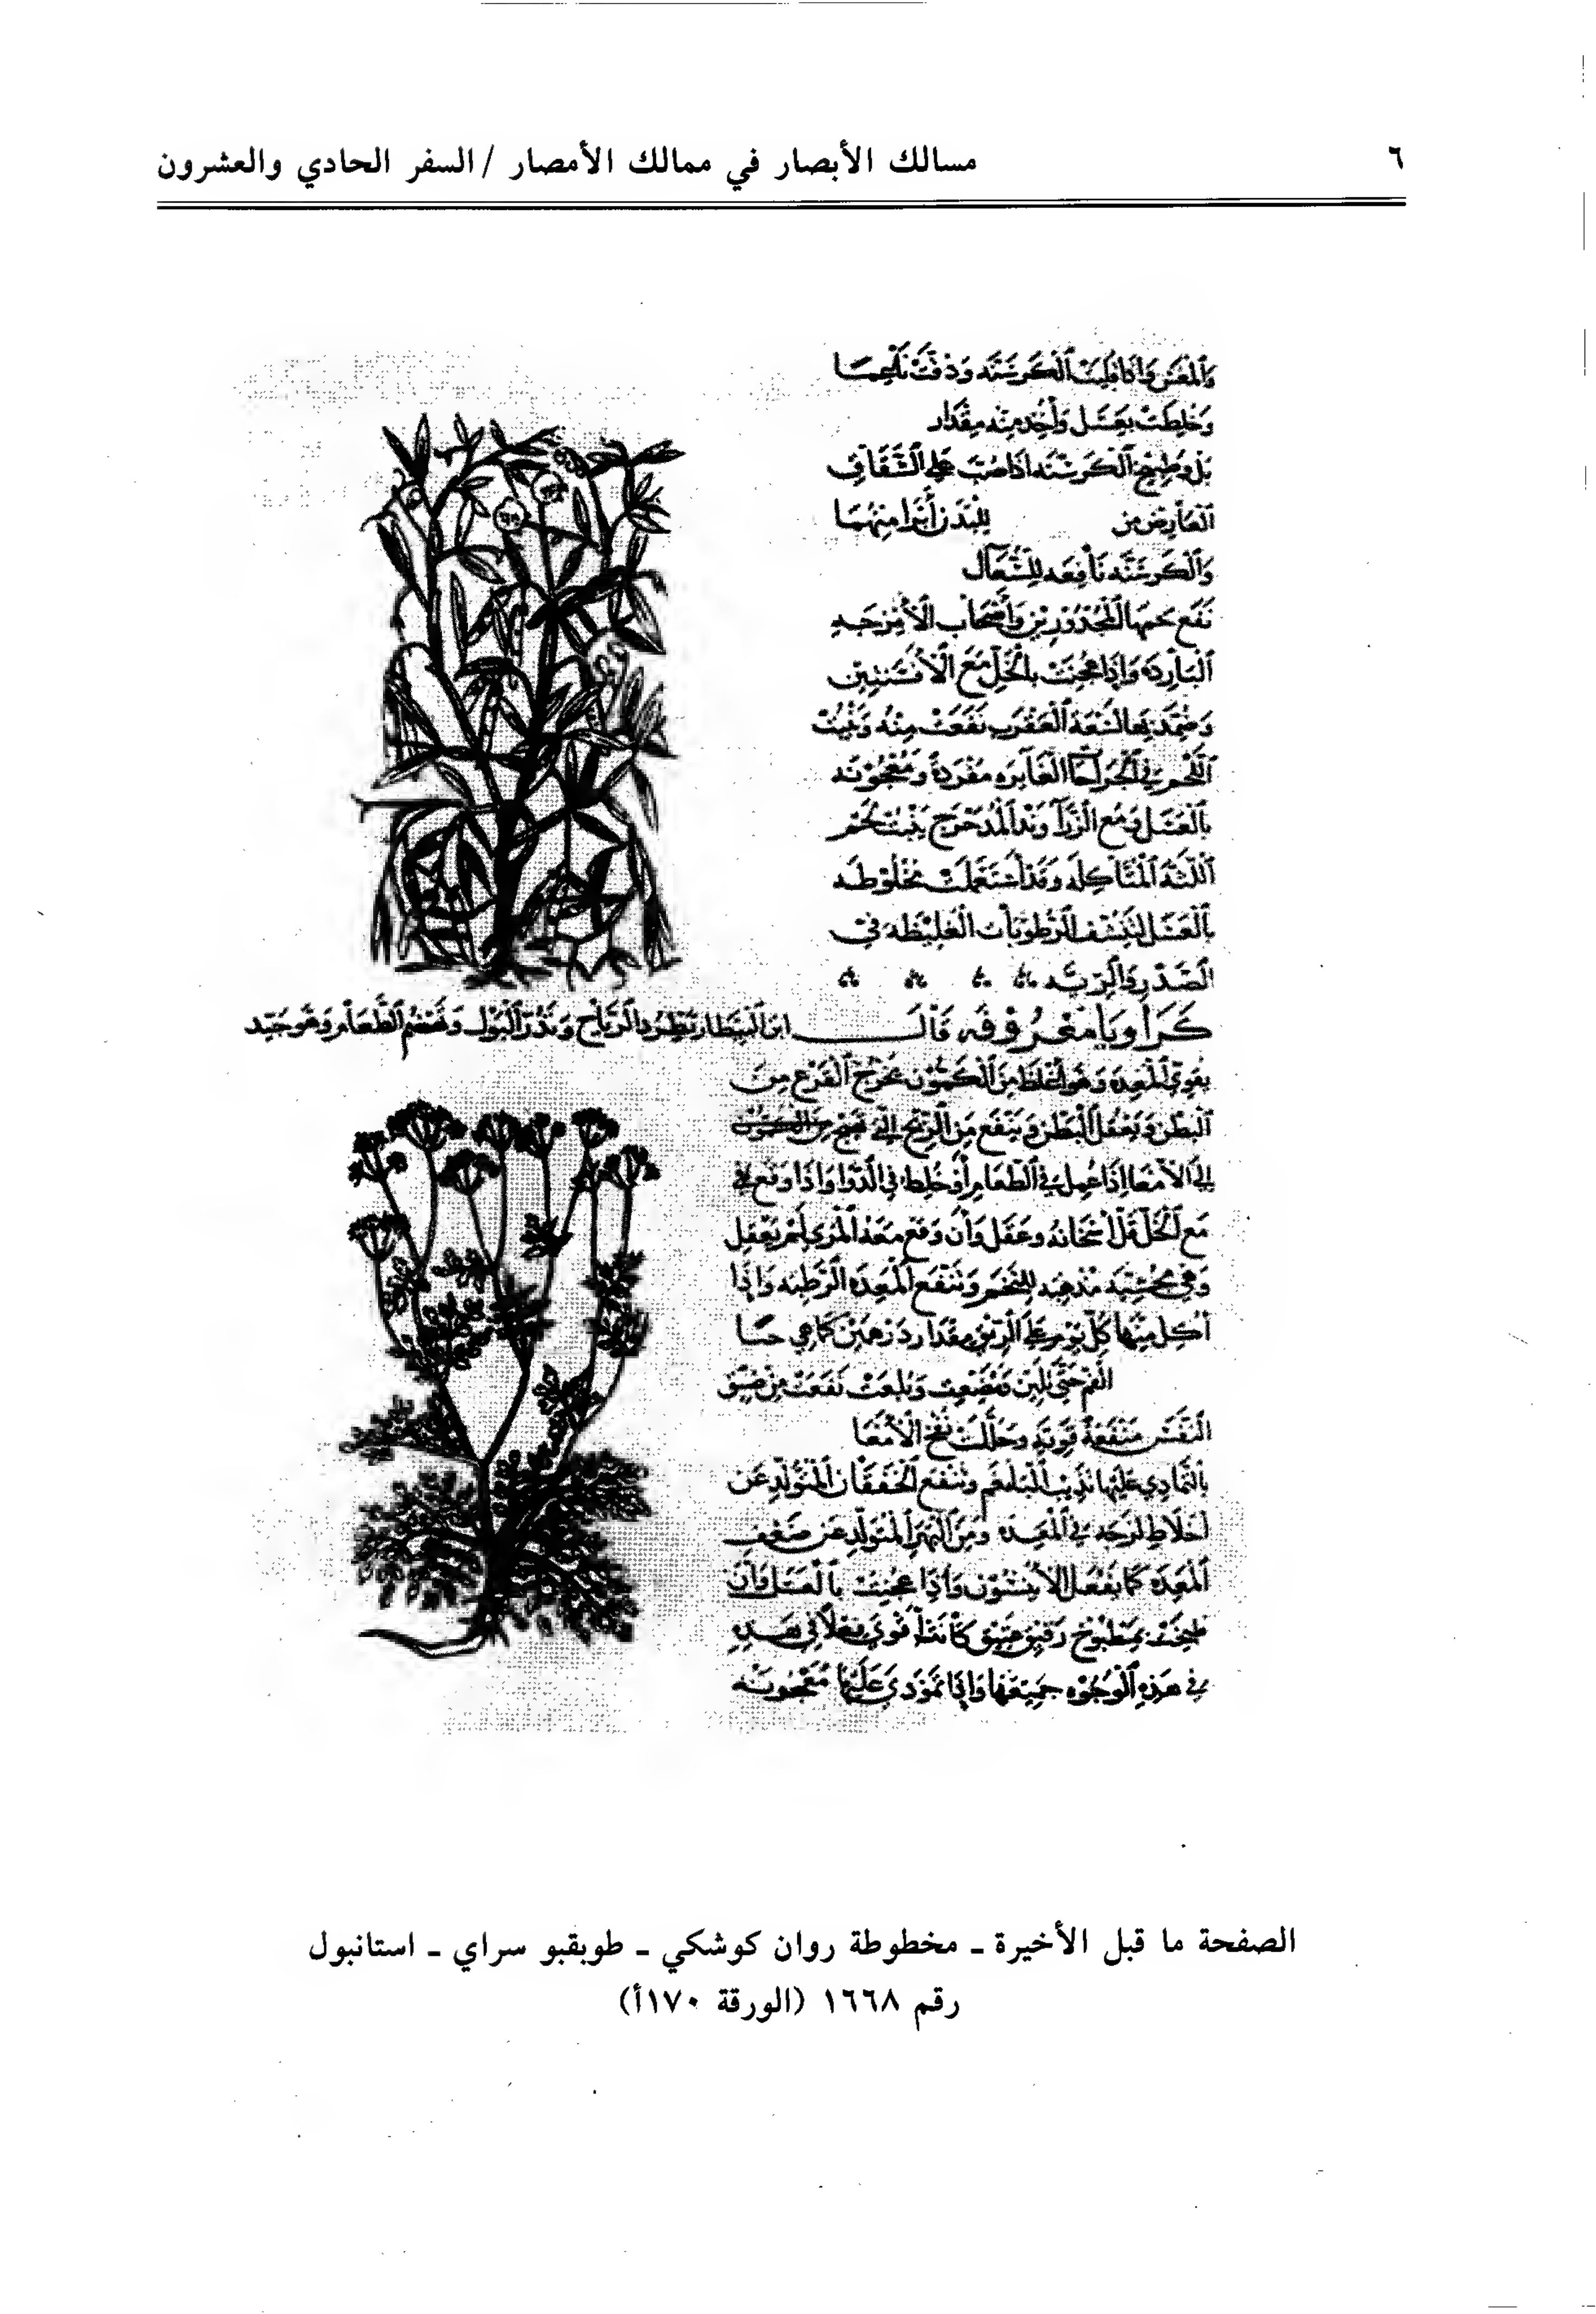 ٦
مسالك الأبصار في ممالك الأمصار / السفر الحادي والعشرون
والمغص وإذا قليت الكرسنه ودقت ناعما
وخلطت بعسل وأخذ منه مقدار
وطبيخ الكرسنه اذا صب على الشقاق
العارض من البرد أبرأ منهما
والكرسنه نافعه للسعال
البارده وإذا عجنت بالخل مع الأفسنتين
وضمد بها لسعة العقرب نفعت منه وتنبت
اللحم في الجراحات الغايره مفردة ومعجونه
بالعسل ومع الزراوند المدحرج ينبت لحم
اللثه المتأكله وقد استعملت مخلوطه
بالعسل لتنشف الرطوبات الغليظه في
الصدر والريه
كراويا معروفه قال ابن البيطار تطرد الرياح وتدر البول وتهضم الطعام وهو جيد
يقوي المعده وهو أغلظ من الكمون يخرج القرع من
البطن ويعقل البطن وينفع من الريح التي تهيج من الكمون
في الأمعا إذا عمل في الطعام أو خلط في الدوا واذا وقع
مع الخل قل اسخانه وعقل وان وقع معه المري لم يعقل
وهي مجشيه مذهبه للتخم وتنفع المعده الرطبه واذا
أكل منها كل يوم على الريق مقدار درهمين كما هي حبا
الفم حتى تلين ومضغت وبلعت نفعت من ضيق
النفس منفعة قويه وحللت نفخ الأمعا
بالتمادي عليها تذيب البلغم وتنفع الخفقان المتولد عن
أخلاط لزجه في المعده ومن البهر المتولد عن ضعف
المعده كما يفعل الأنيسون وإذا عجنت بالعسل وان
طبخت بمطبوخ رقيق عتيق كانت أقوى فعلا
في هذه الوجوه جميعها واذا تمودي عليها معجونه
الصفحة ما قبل الأخيرة ـ مخطوطة روان كوشكي ـ طوبقبو سراي ـ استانبول
رقم ١٦٦٨ (الورقة ١٧٠أ)